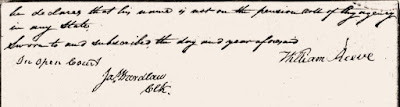 he declares that his name is not on the pension roll of the agency
in any State
Sworn to and subscribed the day and year aforesaid
In open Court William Reeve
Jas Wardlaw
Clk.